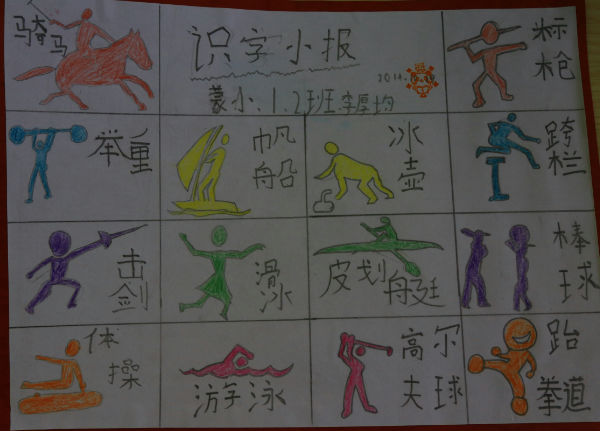 骑马
识字小报
2014.
蒙小、1.2班 李厚均
标枪
举重
帆船
冰壶
跨栏
击剑
滑冰
皮划艇
棒球
体操
游泳
高尔夫球
跆拳道